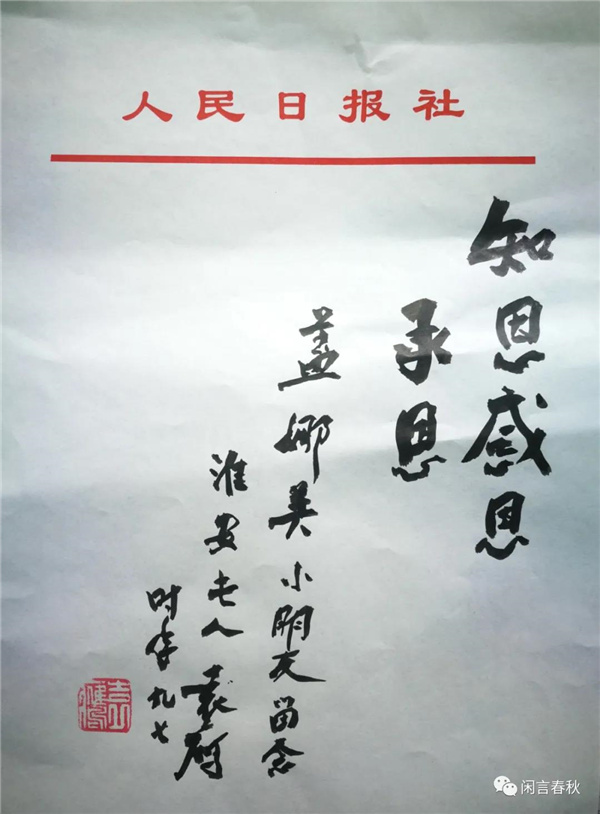 人民日报社
知恩感恩
承恩
盖娜小朋友留念
淮安老人袁鹰
时年九七
闲言春秋